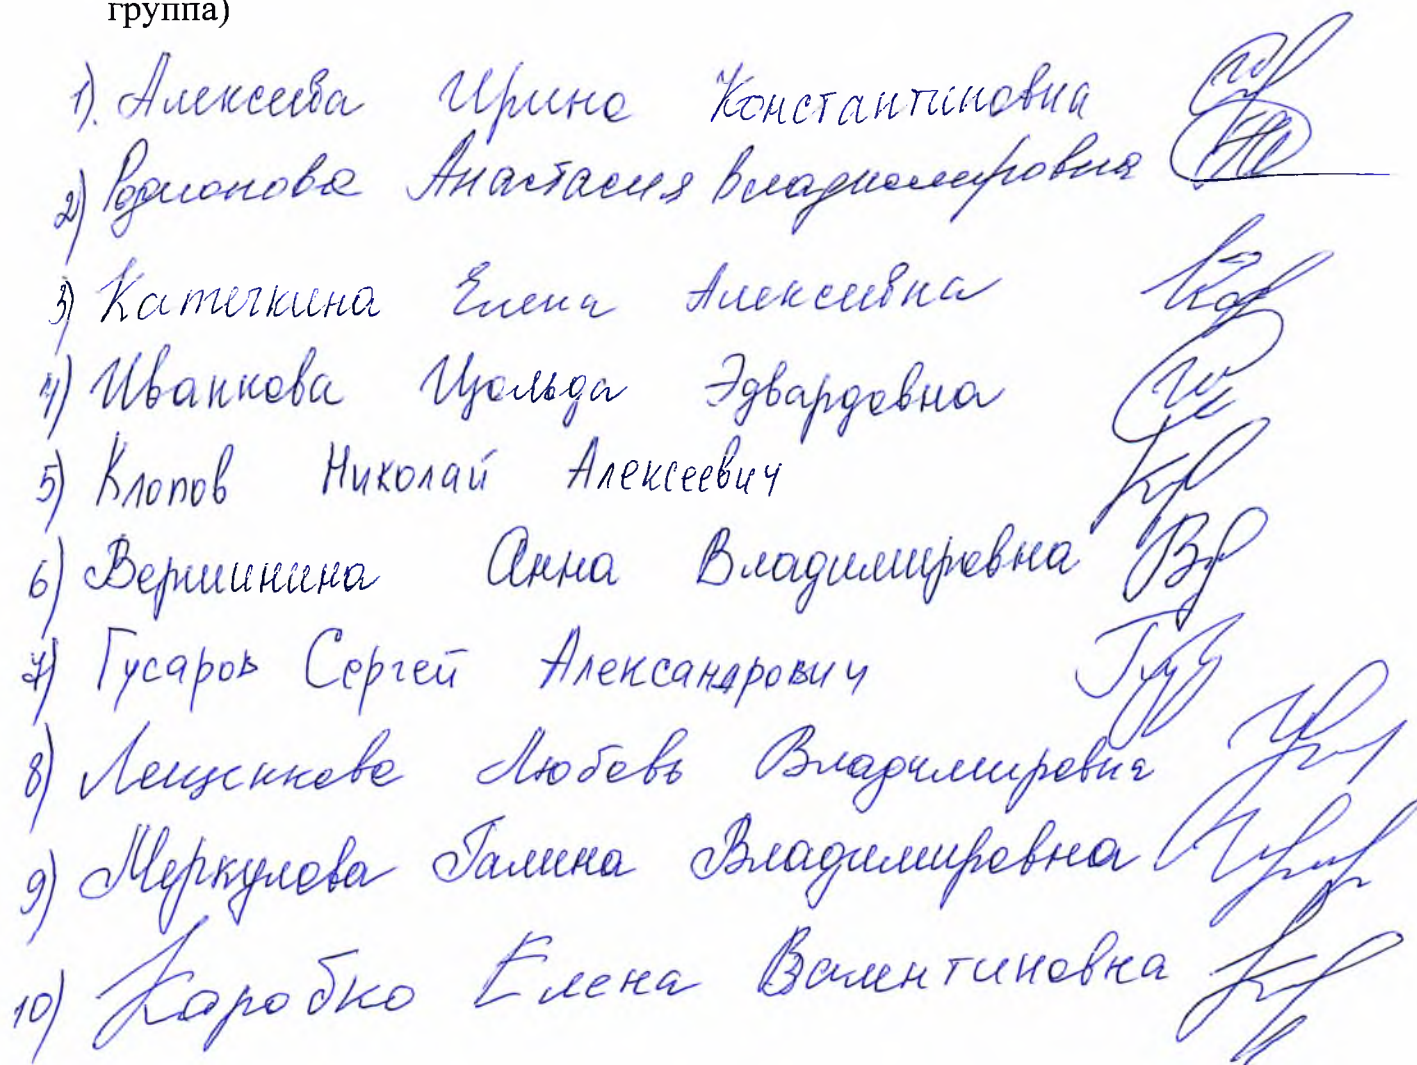 группа)
1). Алексеева Ирина Константиновна
2) Родионова Анастасия Владимировна
3) Катечкина Елена Алексеевна
4) Иванкова Изольда Эдвардовна
5) Клопов Николай Алексеевич
6) Вершинина Анна Владимировна
7) Гусаров Сергей Александрович
8) Лещенкова Любовь Владимировна
9) Меркулова Галина Владимировна
10) Коробко Елена Валентиновна